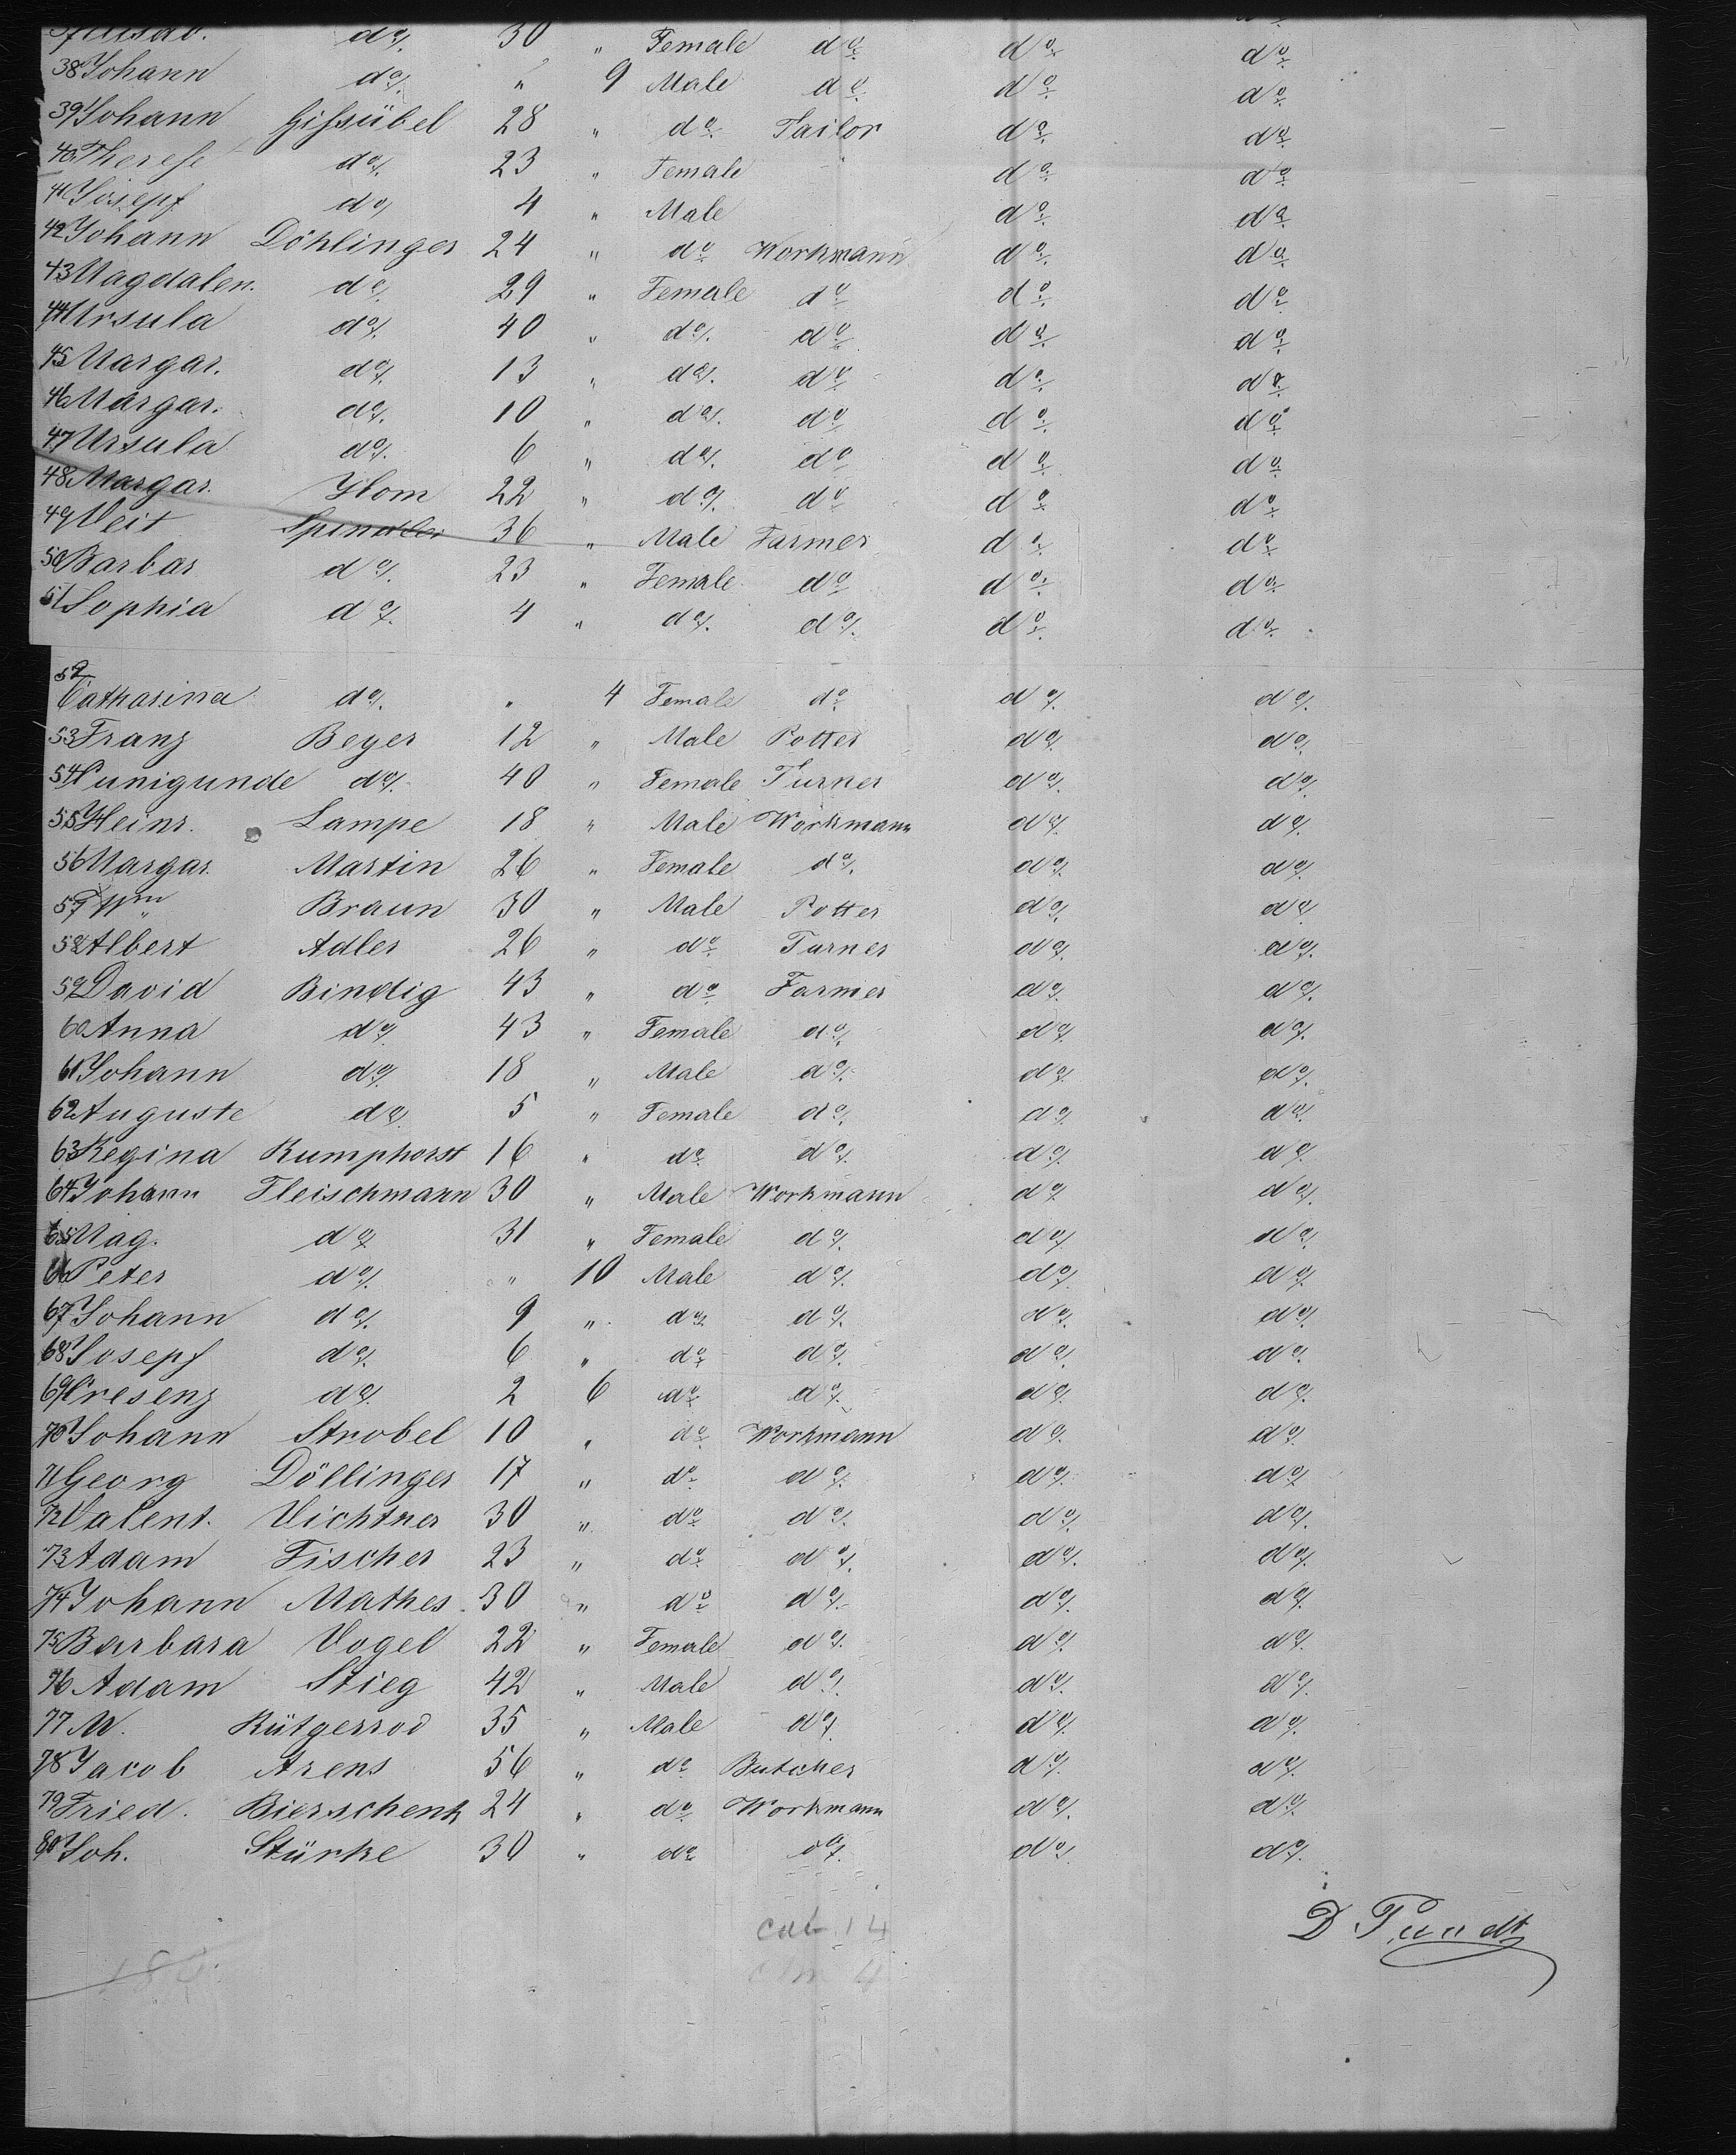 30 " Female do do do
38 Johann do " 9 Male do do do
39 Johann Gißsübel 28 " do Tailor do do
40 Therese do 23 " Female " do do
41 Josepf do 4 " Male do do
42 Johann Döhlinger 24 " do Workmann do do
43 Magdalen. do 29 " Female do do do
44 Ursula do 40 " do do do do
45 Margar. do 13 " do do do do
46 Margar. do 10 " do do do do
47 Ursula do 6 " do do do do
48 Margar. Hom 22 " do do do do
49 Veit Spindler 36 " Male Farmer do do
50 Barbar do 23 " Female do do do
51 Sophia do 4 " do do do do
52 Catharina do " 4 Female do do do
53 Franz Beyer 12 " Male Potter do do
54 Cunigunde do 40 " Female Turner do do
55 Heinr. Lampe 18 " Male Workmann do do
56 Margar. Martin 26 " Female do do do
57 Wm Braun 30 " Male Potter do do
58 Albert Adler 26 " do Turner do do
59 David Bindig 43 " do Farmer do do
60 Anna do 43 " Female do do do
61 Johann do 18 " Male do do do
62 Auguste do 5 " Female do do do
63 Regina Rumphorst 16 " do do do do
64 Johann Fleischmann 30 " Male Workmann do do
65 Mag. do 31 " Female do do do
66 Peter do " 10 Male do do do
67 Johann do 9 " do do do do
68 Josepf do 6 " do do do do
69 Cresenz do 2 6 do do do do
70 Johann Strobel 10 " do Workmann do do
71 Georg Döllinger 17 " do do do do
72 Valent. Vichtner 30 " do do do do
73 Adam Fischer 23 " do do do do
74 Johann Mathes 30 " do do do do
75 Barbara Vogel 22 " Female do do do
76 Adam Stieg 42 " Male do do do
77 M. Rütgerrod 35 " Male do do do
78 Jacob Arens 56 " do Butcher do do
79 Fried. Bierschenk 24 " do Workmann do do
80 Joh. Stürke 30 " do do do do
D Pundt
cab 14